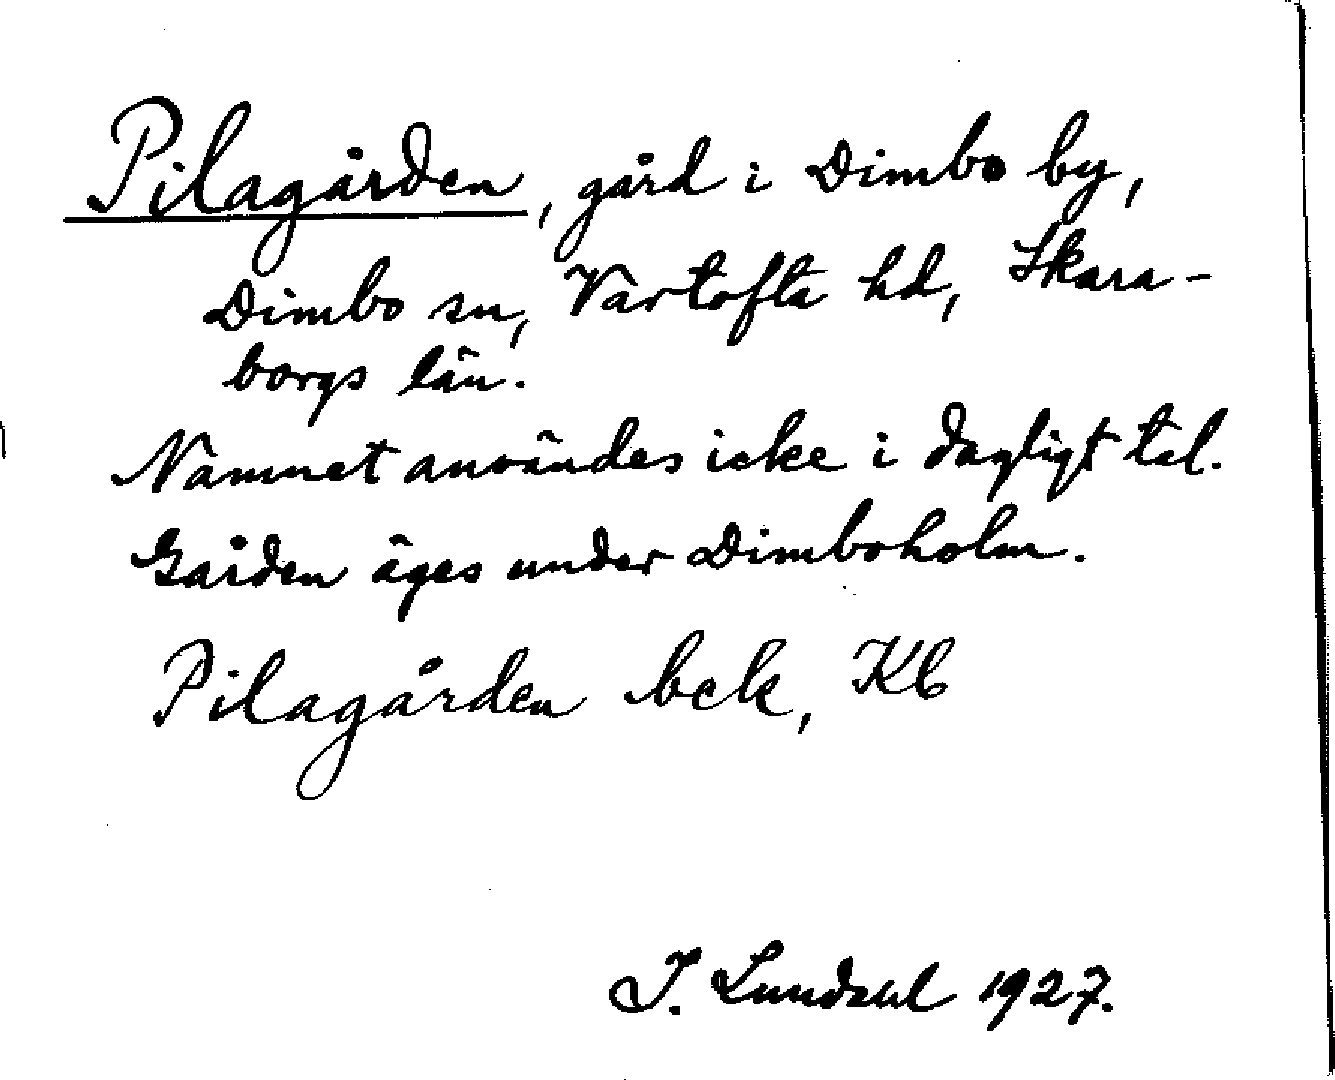 Pilagården, gård i Dimbo by,
Dimbo sn, Vartofta hd, Skara-
borgs län.
Namnet användes icke i dagligt tal.
Gården äges under Dimboholm.
Pilagården bek, Kb
I. Lundahl 1927.